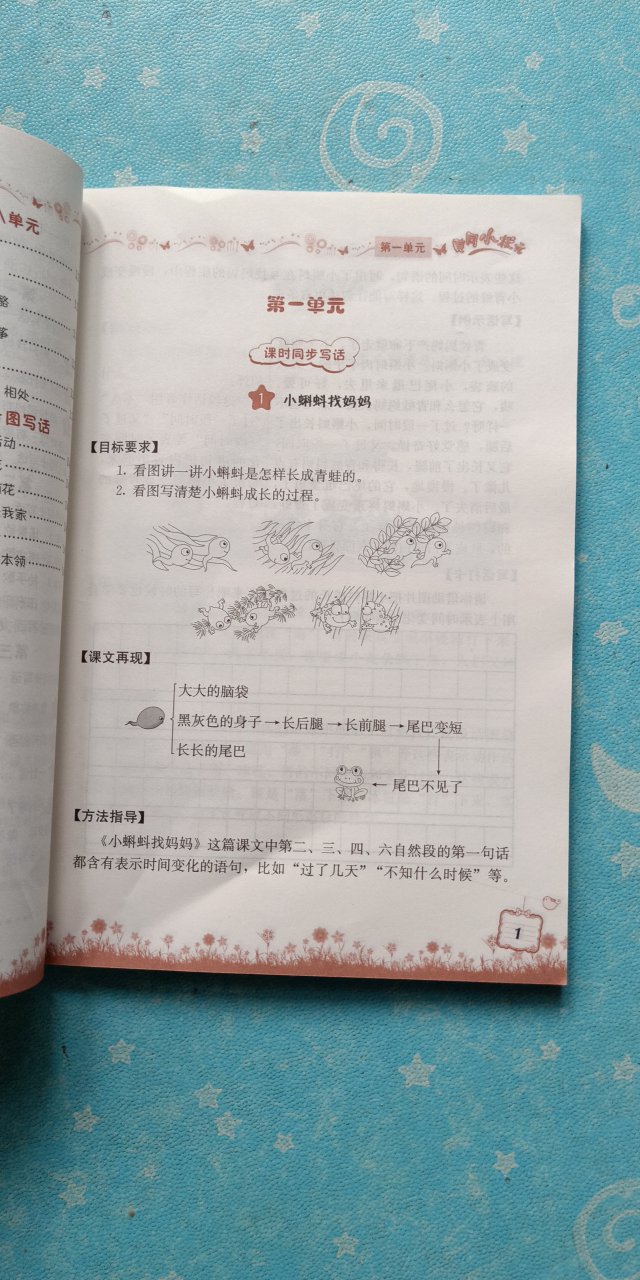 单元
相处
图写话
活动
花
我家
本领
第一单元
黄冈小状元
第一单元
课时同步写话
1 小蝌蚪找妈妈
【目标要求】
1. 看图讲一讲小蝌蚪是怎样长成青蛙的。
2. 看图写清楚小蝌蚪成长的过程。
【课文再现】
大大的脑袋
黑灰色的身子→长后腿→长前腿→尾巴变短
长长的尾巴
←尾巴不见了
【方法指导】
《小蝌蚪找妈妈》这篇课文中第二、三、四、六自然段的第一句话
都含有表示时间变化的语句，比如“过了几天”“不知什么时候”等。
1